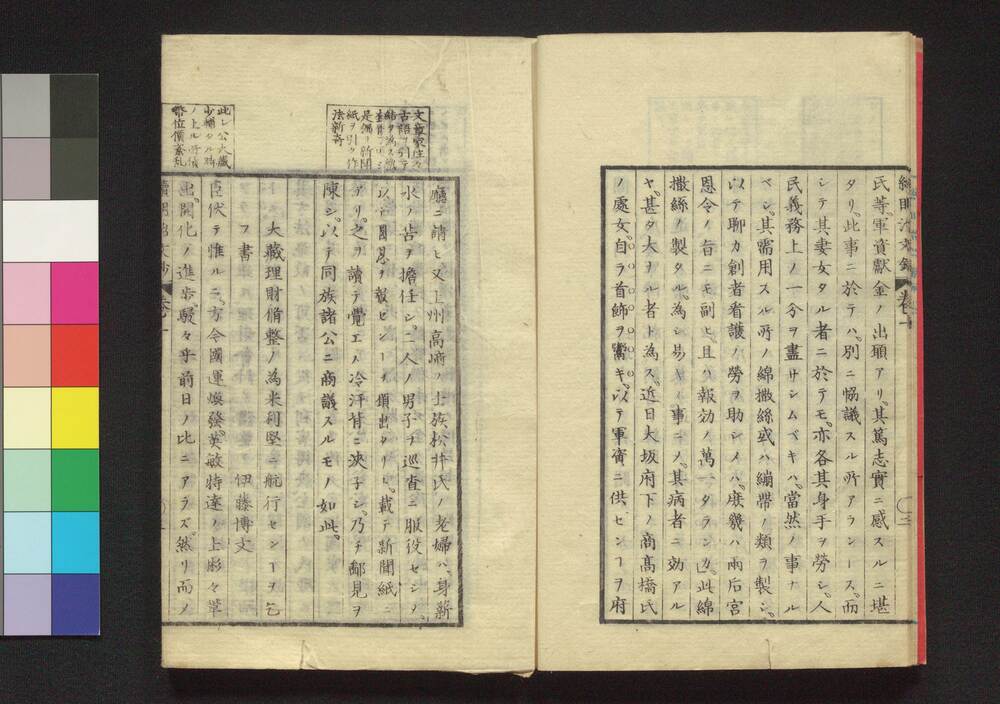 氏等。軍資獻金ノ出願アリ。其篤志實ニ感スルニ堪
タリ。此事ニ於テハ。別ニ恊議スル所アラントス。而
シテ其妻女タル者ニ於テモ。亦各其身手ヲ勞シ。人
民義務上ノ一分ヲ盡サシムベキハ。當然ノ事ナル
ベシ。其需用スル所ノ綿撒絲或ハ繃帶ノ類ヲ製シ。
以テ聊カ創者看護ノ勞ヲ助シメハ。庶幾ハ兩后宮
恩令ノ旨ニモ副ヒ。且ハ報効ノ萬一タランカ。此綿
撒絲ノ製タル。為シ易キノ事ニ〆。其病者ニ効アル
ヤ。甚タ大ヲル者ト為ス。近日大坂府下ノ商髙橋氏
ノ處女。自ラ首飾ヲ鬻キ。以テ軍資ニ供センヿヲ府
廳ニ請ヒ又上州高崎ノ士族松井氏ノ老婦ハ。身新
水ノ告ヲ擔任シ。二人ノ男子ヲ巡査ニ服役セシメ。
以テ國恩ヲ報センヿヲ願出タリト。載テ新聞紙ニ
アリ。之ヲ讀テ覺エス冷汗背ニ浹子シ。乃チ鄙見ヲ
陳シ。以テ同族諸公ニ商議スルモノ如此。
大藏理財脩整ノ為米利堅ニ航行センヿヲ乞
フ書
伊藤博文
臣伏テ惟ルニ。方今國運煥發。英敏特達ノ上彬々輩
出。開化ノ進歩。駸々乎前日ノ比ニアラズ。然リ而ノ
文章家往々
古語ヲ引テ
結タ為ス
是偏ニ新聞
紙ヲ引ク作
法新奇
此レ公大藏
少輔タル時
ノ上ル所
幣位價紊乱
卷十